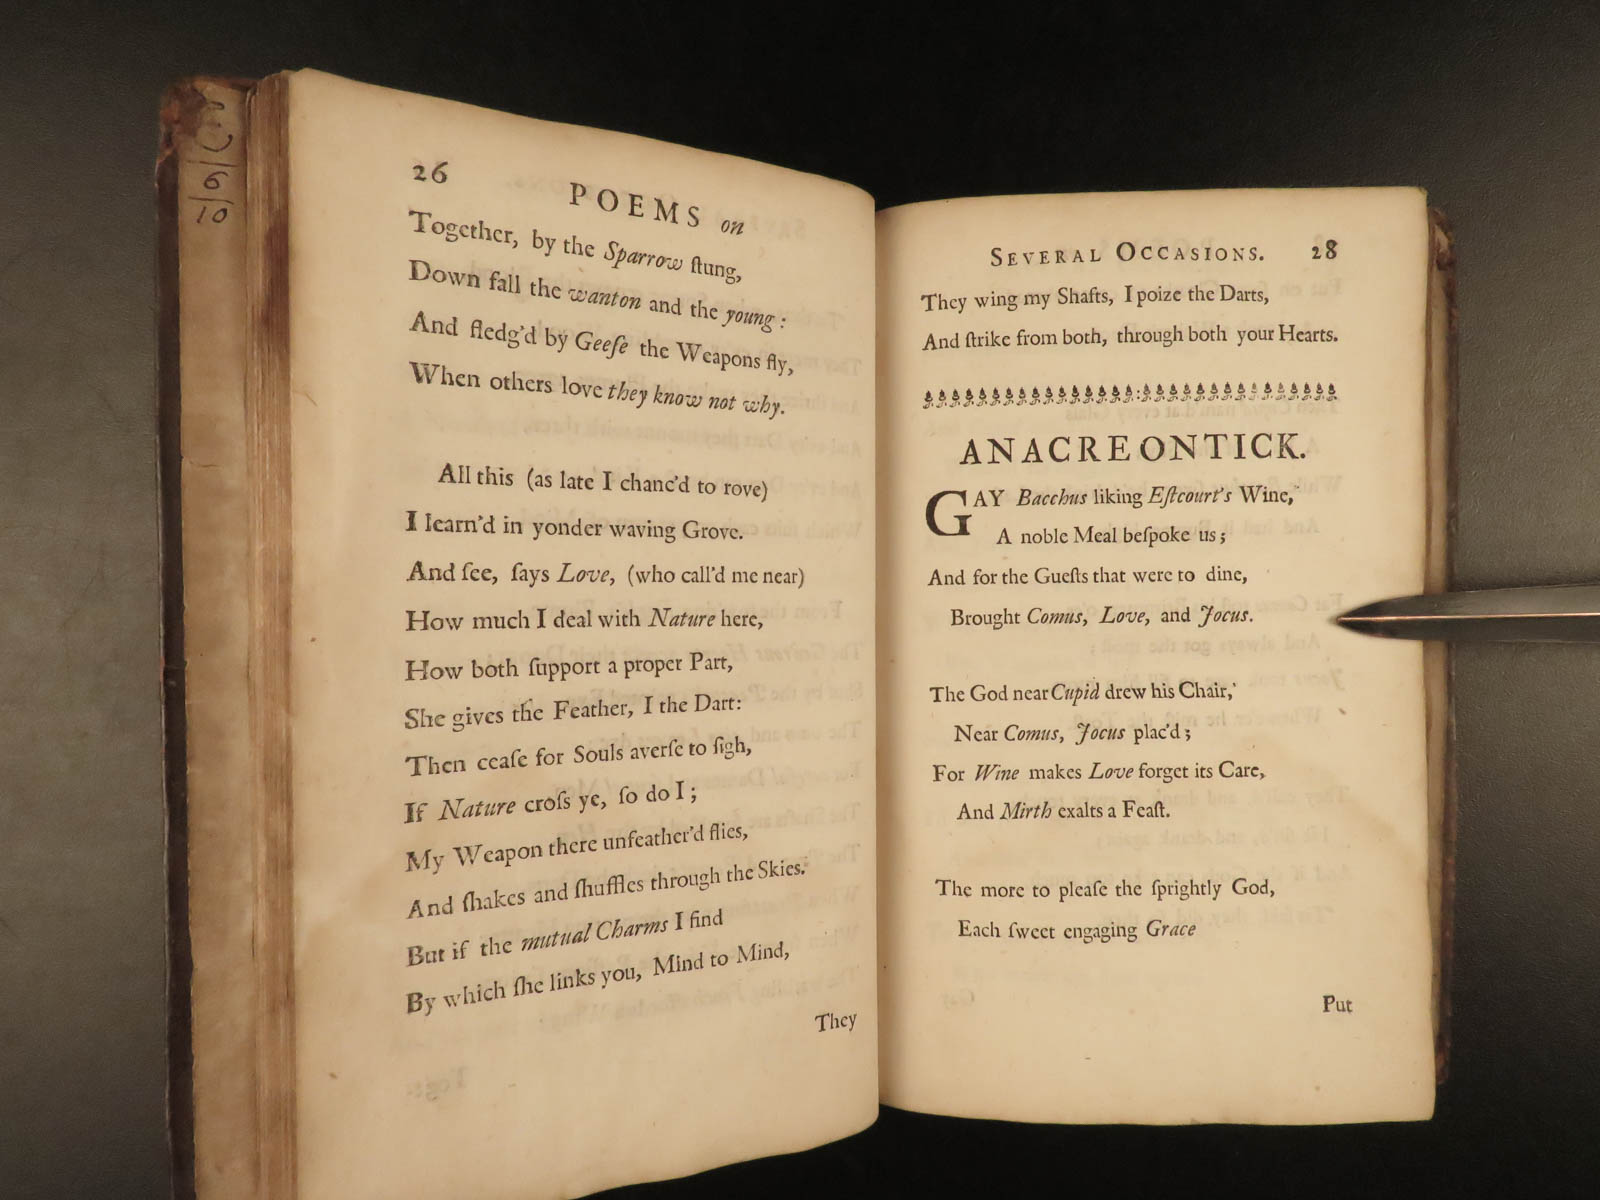 6
10
26
POEMS on
Together, by the Sparrow ſtung,
Down fall the wanton and the young:
And fledg'd by Geeſe the Weapons fly,
When others love they know not why.
All this (as late I chanc'd to rove)
I learn'd in yonder waving Grove.
And ſee, ſays Love, (who call'd me near)
How much I deal with Nature here,
How both ſupport a proper Part,
She gives the Feather, I the Dart:
Then ceaſe for Souls averſe to ſigh,
If Nature croſs ye, ſo do I;
My Weapon there unfeather'd flies,
And ſhakes and ſhuffles through the Skies.
But if the mutual Charms I find
By which ſhe links you, Mind to Mind,
They
SEVERAL OCCASIONS. 28
They wing my Shafts, I poize the Darts,
And ſtrike from both, through both your Hearts.
ANACREONTICK.
GAY Bacchus liking Eſtcourt's Wine,
A noble Meal beſpoke us;
And for the Gueſts that were to dine,
Brought Comus, Love, and Jocus.
The God near Cupid drew his Chair,
Near Comus, Jocus plac'd;
For Wine makes Love forget its Care,
And Mirth exalts a Feaſt.
The more to pleaſe the ſprightly God,
Each ſweet engaging Grace
Put